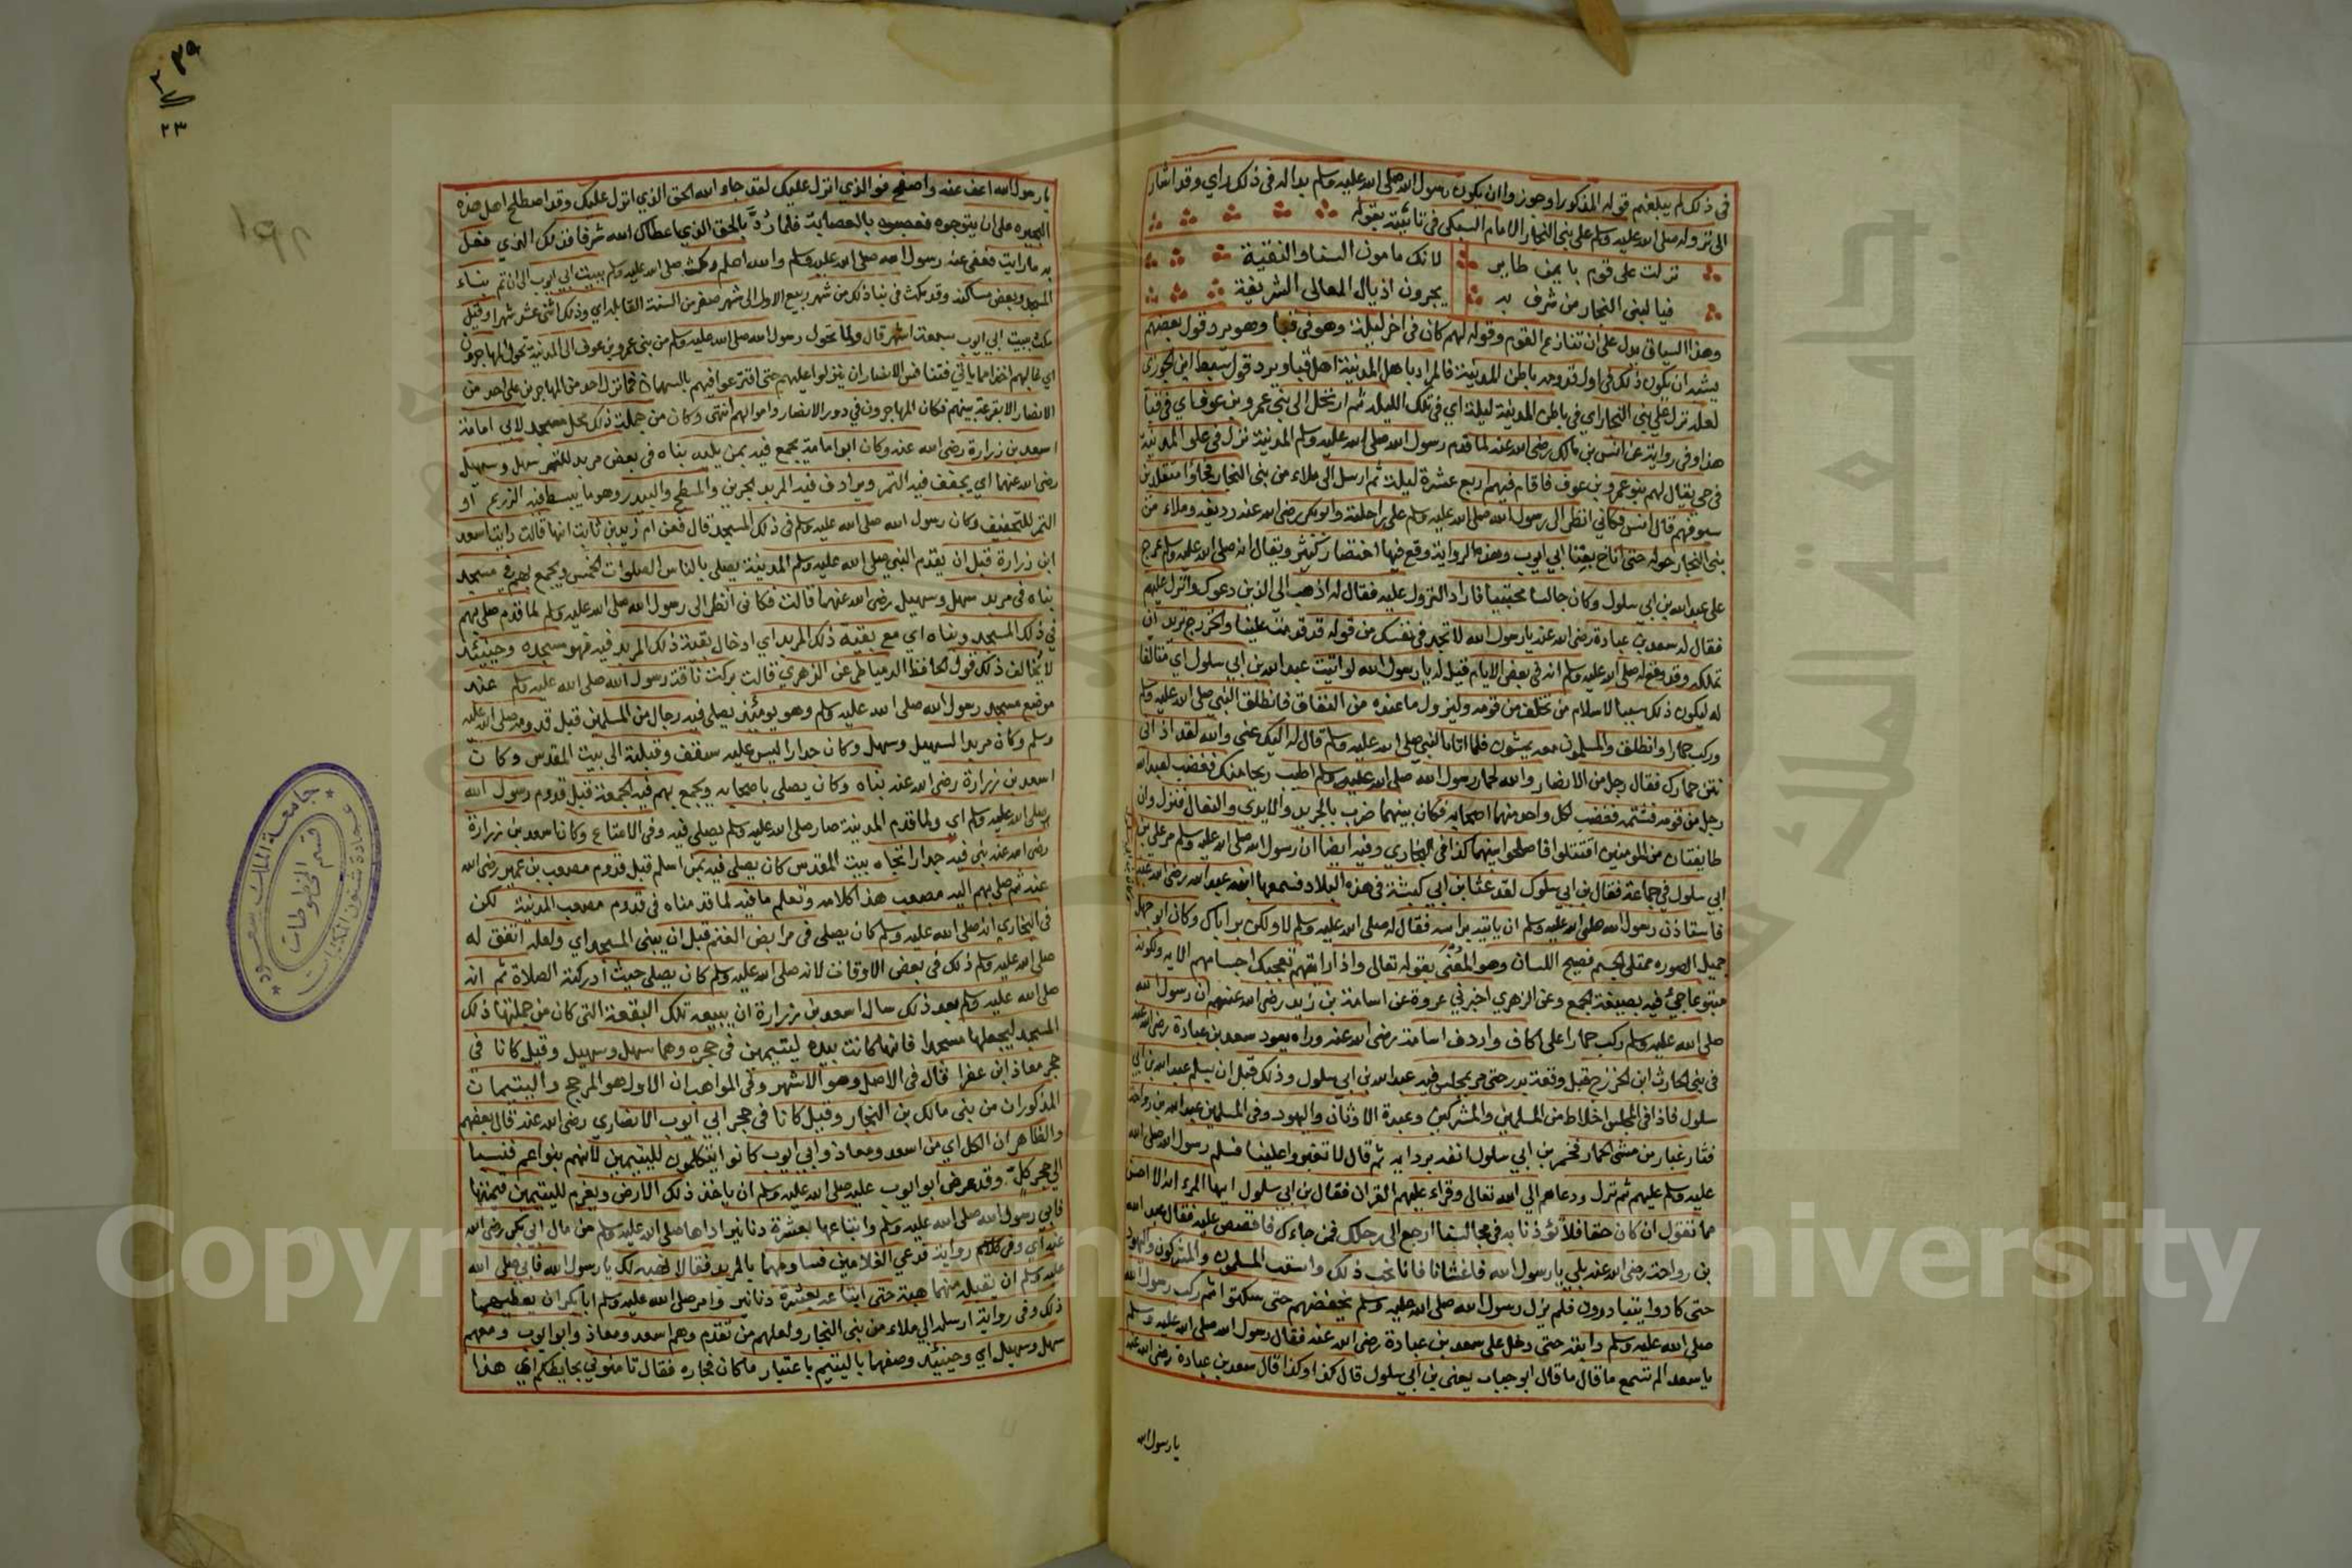 في ذلك لم يبلغهم قوله المذكور او جوزوا ان يكون رسول الله صلى الله عليه وسلم بدا له في ذلك راي وقد اشار
الى نزوله صلى الله عليه وسلم على بني النجار الامام السبكي في تائيته بقوله
نزلت على قوم بايمن طاير لانك مامون السنا والنقيبة
فيا لبني النجار من شرف به يجرون اذيال المعالي الشريفة
وهذا السياق يدل على ان تنازع القوم وقوله لهم كان في اخر ليلة وهو في قبا وهو يرد قول بعضهم
يشبه ان يكون ذلك في اول قدومه باطن المدينة فالمراد باهل المدينة اهل قبا ويرد قول سبط ابن الجوزي
لعله نزل على بني النجار اي في باطن المدينة ليلة اي في تلك الليلة ثم ارتحل الى بني عمرو بن عوف اي في قبا
هذا وفي رواية عن انس بن مالك رضي الله عنه لما قدم رسول الله صلى الله عليه وسلم المدينة نزل في علو المدينة
في حي يقال لهم بنو عمرو بن عوف فاقام فيهم اربع عشرة ليلة ثم ارسل الى ملاء من بني النجار فجاؤا متقلدين
سيوفهم قال انس فكاني انظر الى رسول الله صلى الله عليه وسلم على راحلته وابو بكر رضي الله عنه رديفه وملاء من
بني النجار حوله حتى اناخ بفنا ابي ايوب وهذه الرواية وقع فيها اختصار كثير ويقال انه صلى الله عليه وسلم عرج
على عبد الله بن ابي سلول وكان جالسا محتبيا فاراد النزول عليه فقال له اذهب الى الذين دعوك وانزل عليهم
فقال له سعد بن عبادة رضي الله عنه يا رسول الله لا تجد في نفسك من قوله قد قدمت علينا والخزرج تريد ان
تملكه وقد وقع له صلى الله عليه وسلم انه في بعض الايام قيل له يا رسول الله لو اتيت عبد الله بن ابي سلول اي متالفا
له ليكون ذلك سببا لاسلام من تخلف من قومه وليزول ما عنده من النفاق فانطلق النبي صلى الله عليه وسلم
وركب حمارا وانطلق والمسلمون معه يمشون فلما اتاه النبي صلى الله عليه وسلم قال له اليك عني والله لقد اذاني
نتن حمارك فقال رجل من الانصار والله لحمار رسول الله صلى الله عليه وسلم اطيب ريحا منك فغضب لعبد الله
رجل من قومه فشتمه فغضب لكل واحد منهما اصحابه فكان بينهما ضرب بالجريد والايدي والنعال فنزل وان
طايفتان من المومنين اقتتلوا فاصلحوا بينهما كذا في البخاري وفيه ايضا ان رسول الله صلى الله عليه وسلم مر على بن
ابي سلول في جماعة فقال بن ابي سلول لقد عثا ابن ابي كبشة في هذه البلاد فسمعها ابنه عبد الله رضي الله عنه
فاستاذن رسول الله صلى الله عليه وسلم ان ياتيه براسه فقال له صلى الله عليه وسلم لا ولكن بر اباك وكان ابو جهل
جميل الصوره ممتلي الجسم فصيح اللسان وهو المعني بقوله تعالى واذا رايتهم تعجبك اجسامهم الايه ولكونه
متبوعا جئ فيه بصيغة الجمع وعن الزهري اخبرني عروة عن اسامة بن زيد رضي الله عنهم ان رسول الله
صلى الله عليه وسلم ركب حمارا على اكاف واردف اسامة رضي الله عنه وراه يعود سعد بن عبادة رضي الله عنه
في بني الحارث ابن الخزرج قبل وقعة بدر حتى مر بمجلس فيه عبد الله بن ابي سلول وذلك قبل ان يسلم عبد الله بن ابي
سلول فاذا في المجلس اخلاط من المسلمين والمشركين وعبدة الاوثان واليهود وفي المسلمين عبد الله بن رواحة
فثار غبار من مشي الحمار فخمر بن ابي سلول انفه بردايه ثم قال لا تغبروا علينا فسلم رسول الله صلى الله
عليه وسلم عليهم ثم نزل ودعاهم الى الله تعالى وقراء عليهم القران فقال بن ابي سلول ايها المرء انه لا احسن
مما تقول ان كان حقا فلا تؤذنا به في مجالسنا ارجع الى رحلك فمن جاءك فاقصص عليه فقال عبد الله
بن رواحة رضي الله عنه بلى يا رسول الله فاغشانا فانا نحب ذلك واستب المسلمون والمشركون واليهود
حتى كادوا يتبادرون فلم يزل رسول الله صلى الله عليه وسلم يخفضهم حتى سكتوا ثم ركب رسول الله
صلى الله عليه وسلم دابته حتى دخل على سعد بن عبادة رضي الله عنه فقال رسول الله صلى الله عليه وسلم
يا سعد الم تسمع ما قال ما قال ابو حباب يعني بن ابي سلول قال كذا وكذا قال سعد بن عبادة رضي الله عنه
يا رسول الله
يا رسول الله اعف عنه واصفح فو الذي انزل عليك لقد جاء الله الحق الذي انزل عليك وقد اصطلح اهل هذه
البحيره على ان يتوجوه فعصبوه بالعصابة فلما رُدَّ بالحق الذي اعطاك الله شرقا فذلك الذي فعل
به ما رايت فعفى عنه رسول الله صلى الله عليه وسلم والله اعلم ومكث صلى الله عليه وسلم ببيت ابي ايوب الى ان تم بناء
المسجد وبعض مساكنه وقد مكث في بنا ذلك من شهر ربيع الاول الى شهر صفر من السنة القابلة اي وذلك اثنى عشر شهرا وقيل
مكث ببيت ابي ايوب سبعة اشهر قال ولما تحول رسول الله صلى الله عليه وسلم من بني عمرو بن عوف الى المدينة تحول المهاجرون
اي غالبهم اخذا مما ياتي فتنافس الانصار ان ينزلوا عليهم حتى اقترعوا فيهم بالسهمان فما نزل احد من المهاجرين على احد من
الانصار الا بقرعة بينهم فكان المهاجرون في دور الانصار واموالهم انتهى وكان من جملة ذلك محل مسجد لابي امامة
اسعد بن زرارة رضي الله عنه وكان ابو امامة يجمع فيه بمن يليه بناه في بعض مربد للتمر سهل وسهيل
رضي الله عنهما اي يجفف فيه التمر ويرادف فيه المربد الجرين والمسطح والبيدر وهو ما يبسط فيه الزريع او
التمر للتجفيف وكان رسول الله صلى الله عليه وسلم في ذلك المسجد قال فعن ام زيد بن ثابت انها قالت رايت اسعد
ابن زرارة قبل ان يقدم النبي صلى الله عليه وسلم المدينة يصلي بالناس الصلوات الخمس ويجمع بهم في مسجد
بناه في مربد سهل وسهيل رضي الله عنهما قالت فكاني انظر الى رسول الله صلى الله عليه وسلم لما قدم صلى بهم
في ذلك المسجد وبناه اي مع بقية ذلك المربد اي ادخال بقية ذلك المربد فيه فهو مسجده وحينئذ
لا يخالف ذلك قول الحافظ الدمياطي عن الزهري قالت بركت ناقة رسول الله صلى الله عليه وسلم عند
موضع مسجد رسول الله صلى الله عليه وسلم وهو يومئذ يصلي فيه رجال من المسلمين قبل قدومه صلى الله عليه
وسلم وكان مربدا لسهيل وسهل وكان جدارا ليس عليه سقف وقبلته الى بيت المقدس وكان
اسعد بن زرارة رضي الله عنه بناه وكان يصلي باصحابه ويجمع بهم فيه الجمعة قبل قدوم رسول الله
صلى الله عليه وسلم اي ولما قدم المدينة صار صلى الله عليه وسلم يصلي فيه وفي الامتاع وكان اسعد بن زرارة
رضي الله عنه بنى فيه جدارا تجاه بيت المقدس كان يصلي فيه بمن اسلم قبل قدوم مصعب بن عمير رضي الله
عنه ثم صلى بهم اليه مصعب هذا كلامه وتعلم ما فيه لما قدمناه في قدوم مصعب المدينة لكن
في البخاري انه صلى الله عليه وسلم كان يصلي في مرابض الغنم قبل ان يبنى المسجد اي ولعله اتفق له
صلى الله عليه وسلم ذلك في بعض الاوقات لانه صلى الله عليه وسلم كان يصلي حيث ادركته الصلاة ثم انه
صلى الله عليه وسلم بعد ذلك سال اسعد بن زرارة ان يبيعه تلك البقعة التي كان من جملتها ذلك
المسجد ليجعلها مسجدا فانها كانت بيده ليتيمين في حجره وهما سهل وسهيل وقيل كانا في
حجر معاذ ابن عفرا قال في الاصل وهو الاشهر وفي المواهب ان الاول هو المرجح واليتيمان
المذكوران من بني مالك بن النجار وقيل كانا في حجر ابي ايوب الانصاري رضي الله عنه قال بعضهم
والظاهر ان الكل اي من اسعد ومعاذ وابي ايوب كانوا يتكلمون لليتيمين لانهم بنو اعم فنسبا
الى حجر كلٍّ وقد عرض ابو ايوب عليه صلى الله عليه وسلم ان ياخذ ذلك الارض ويغرم لليتيمين قيمتها
فابى رسول الله صلى الله عليه وسلم وابتاعها بعشرة دنانير اداها صلى الله عليه وسلم من مال ابي بكر رضي الله
عنه اي وفي رواية قد دعي الغلامين فساومهما بالمربد فقالا نهبه لك يا رسول الله فابى صلى الله
عليه وسلم ان يقبله منهما هبة حتى ابتاعه بعشرة دنانير وامر صلى الله عليه وسلم ابا بكر ان يعطيهما
ذلك وفي رواية ارسل الى ملاء من بني النجار ولعلهم من تقدم وهم اسعد ومعاذ وابو ايوب ومعهم
سهل وسهيل اي وحينئذ وصفهما باليتيم باعتبار ما كان فجاره فقال ثامنوني بحايطكم اي هذا
٢٣
جامعة الملك سعود
عمادة شئون المكتبات
قسم المخطوطات
جامعة الملك سعود
Copyright © King Saud University